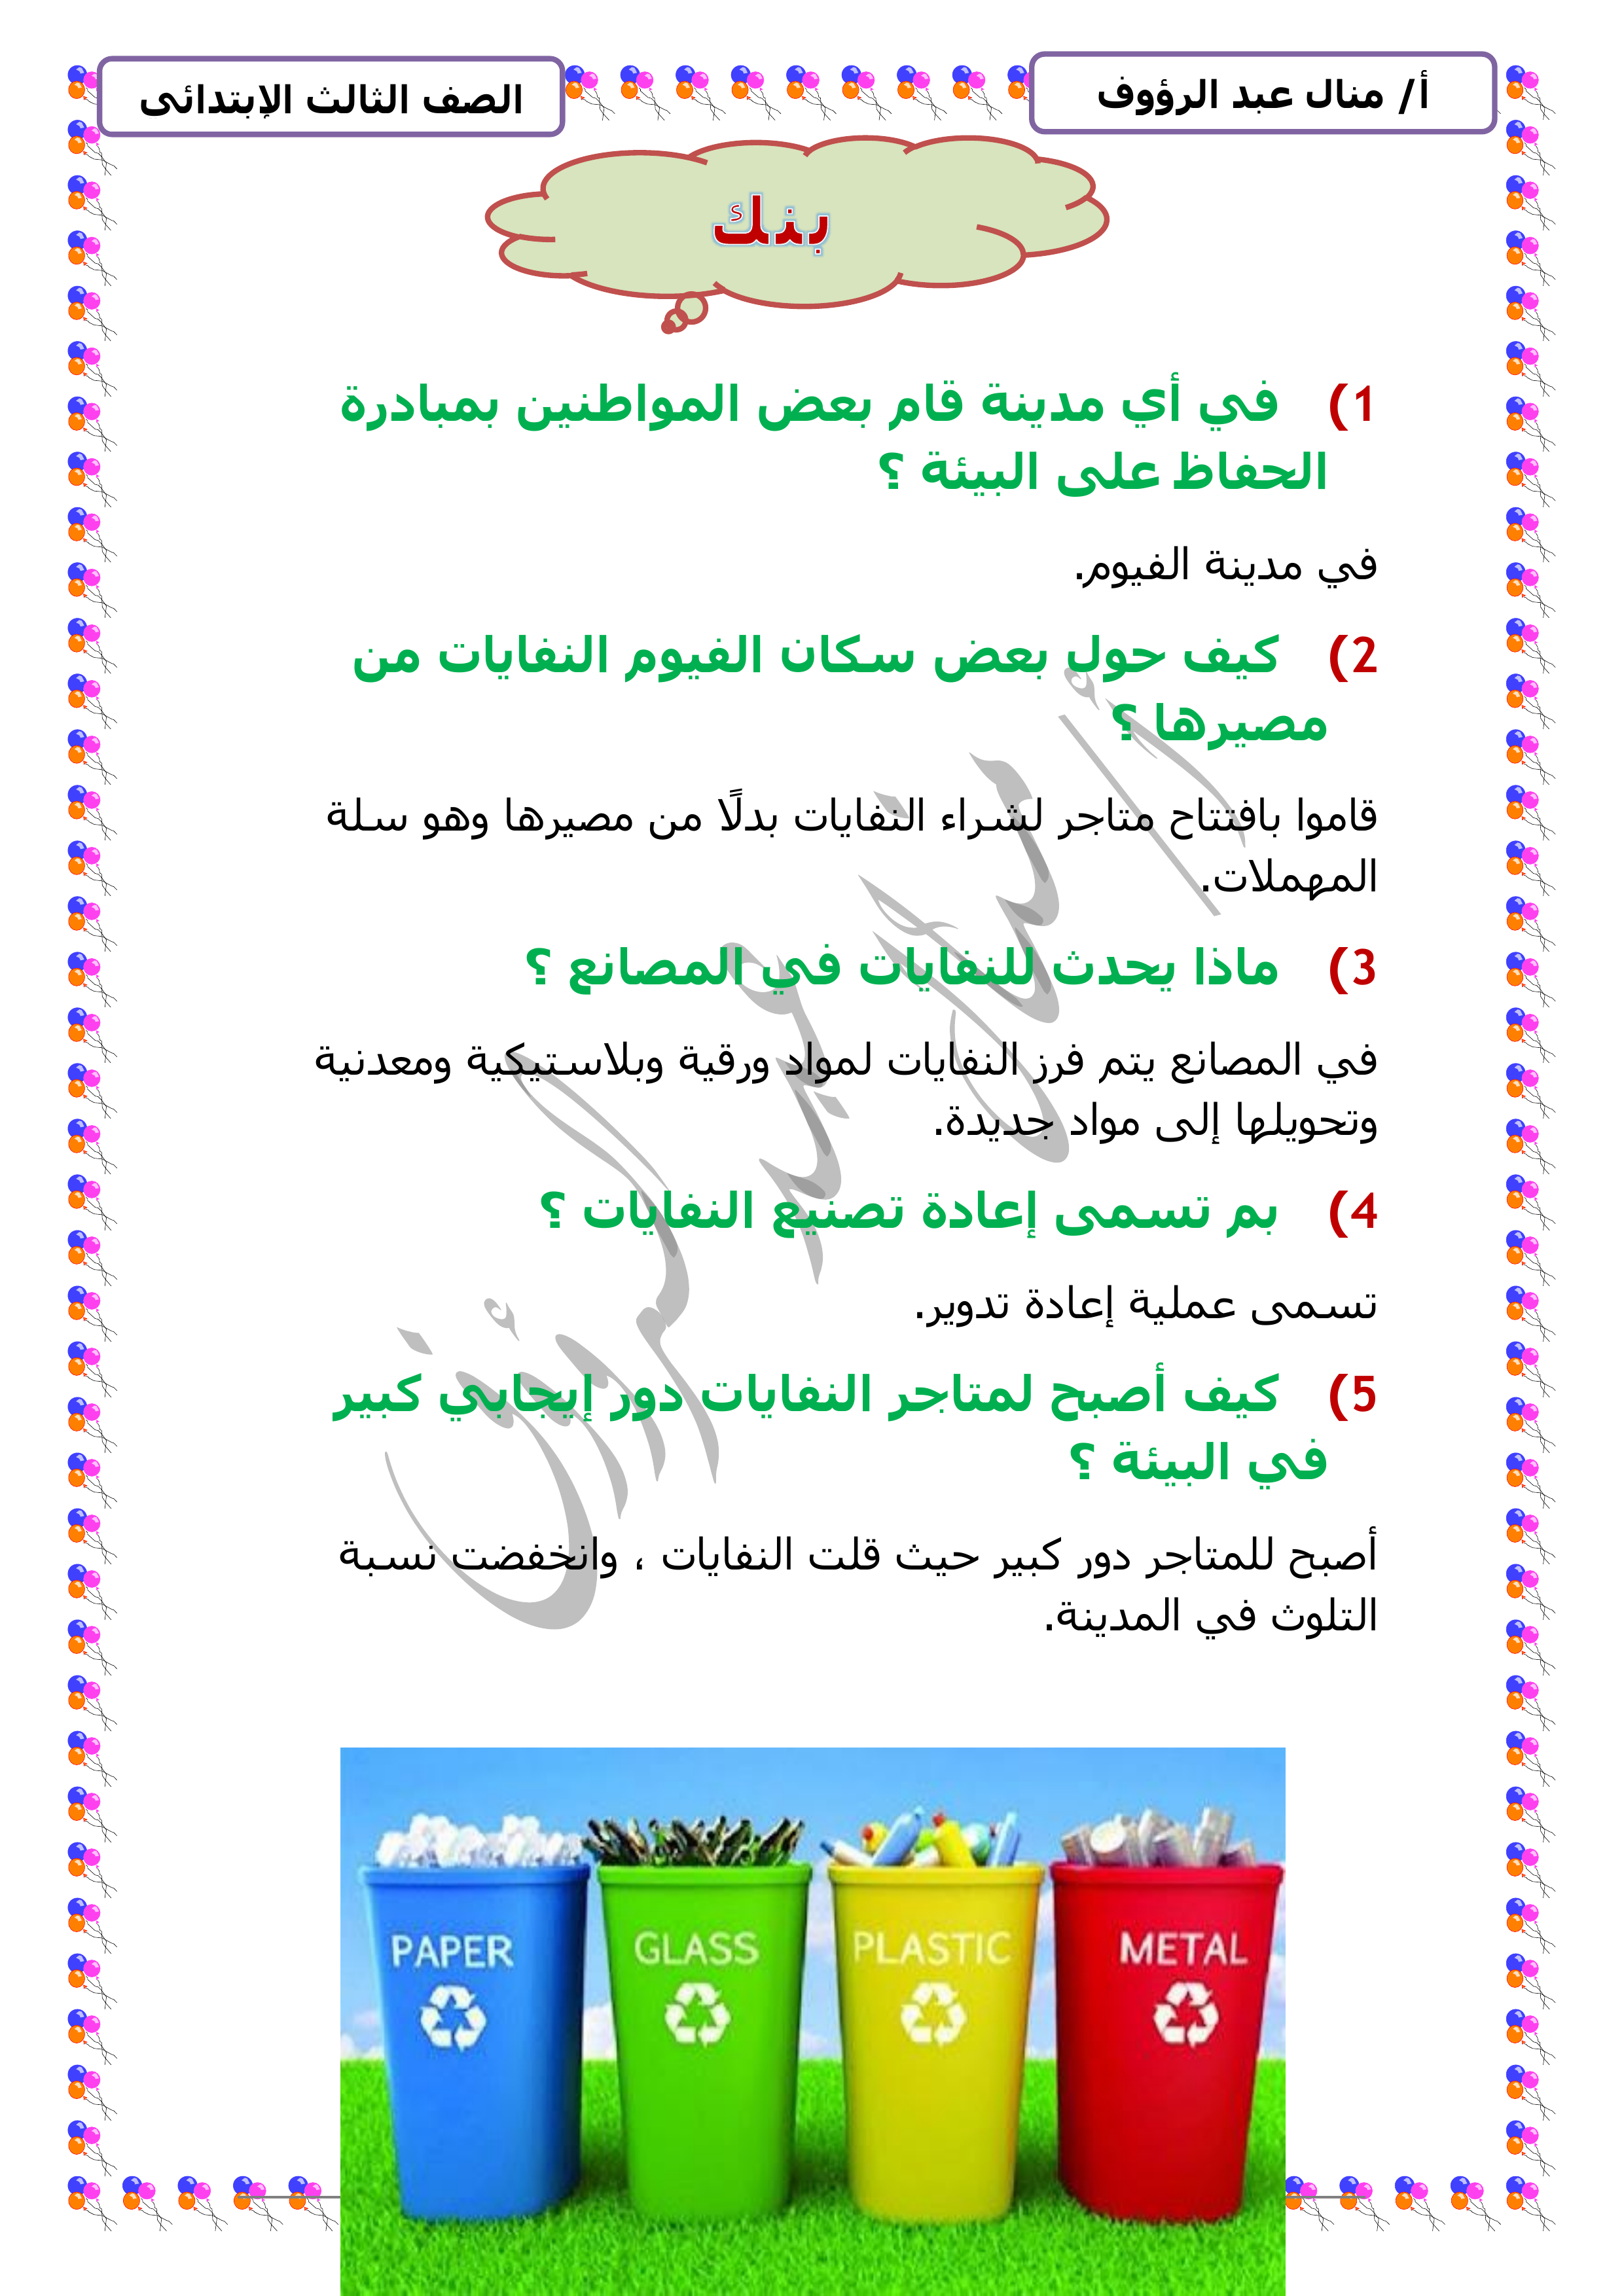 أ/ منال عبد الرؤوف
الصف الثالث الإبتدائى
بنك
1) في أي مدينة قام بعض المواطنين بمبادرة
الحفاظ على البيئة ؟
في مدينة الفيوم.
2) كيف حول بعض سكان الفيوم النفايات من
مصيرها ؟
قاموا بافتتاح متاجر لشراء النفايات بدلًا من مصيرها وهو سلة
المهملات.
3) ماذا يحدث للنفايات في المصانع ؟
في المصانع يتم فرز النفايات لمواد ورقية وبلاستيكية ومعدنية
وتحويلها إلى مواد جديدة.
4) بم تسمى إعادة تصنيع النفايات ؟
تسمى عملية إعادة تدوير.
5) كيف أصبح لمتاجر النفايات دور إيجابي كبير
في البيئة ؟
أصبح للمتاجر دور كبير حيث قلت النفايات ، وانخفضت نسبة
التلوث في المدينة.
أ/ منال عبد الرؤوف
PAPER GLASS PLASTIC METAL